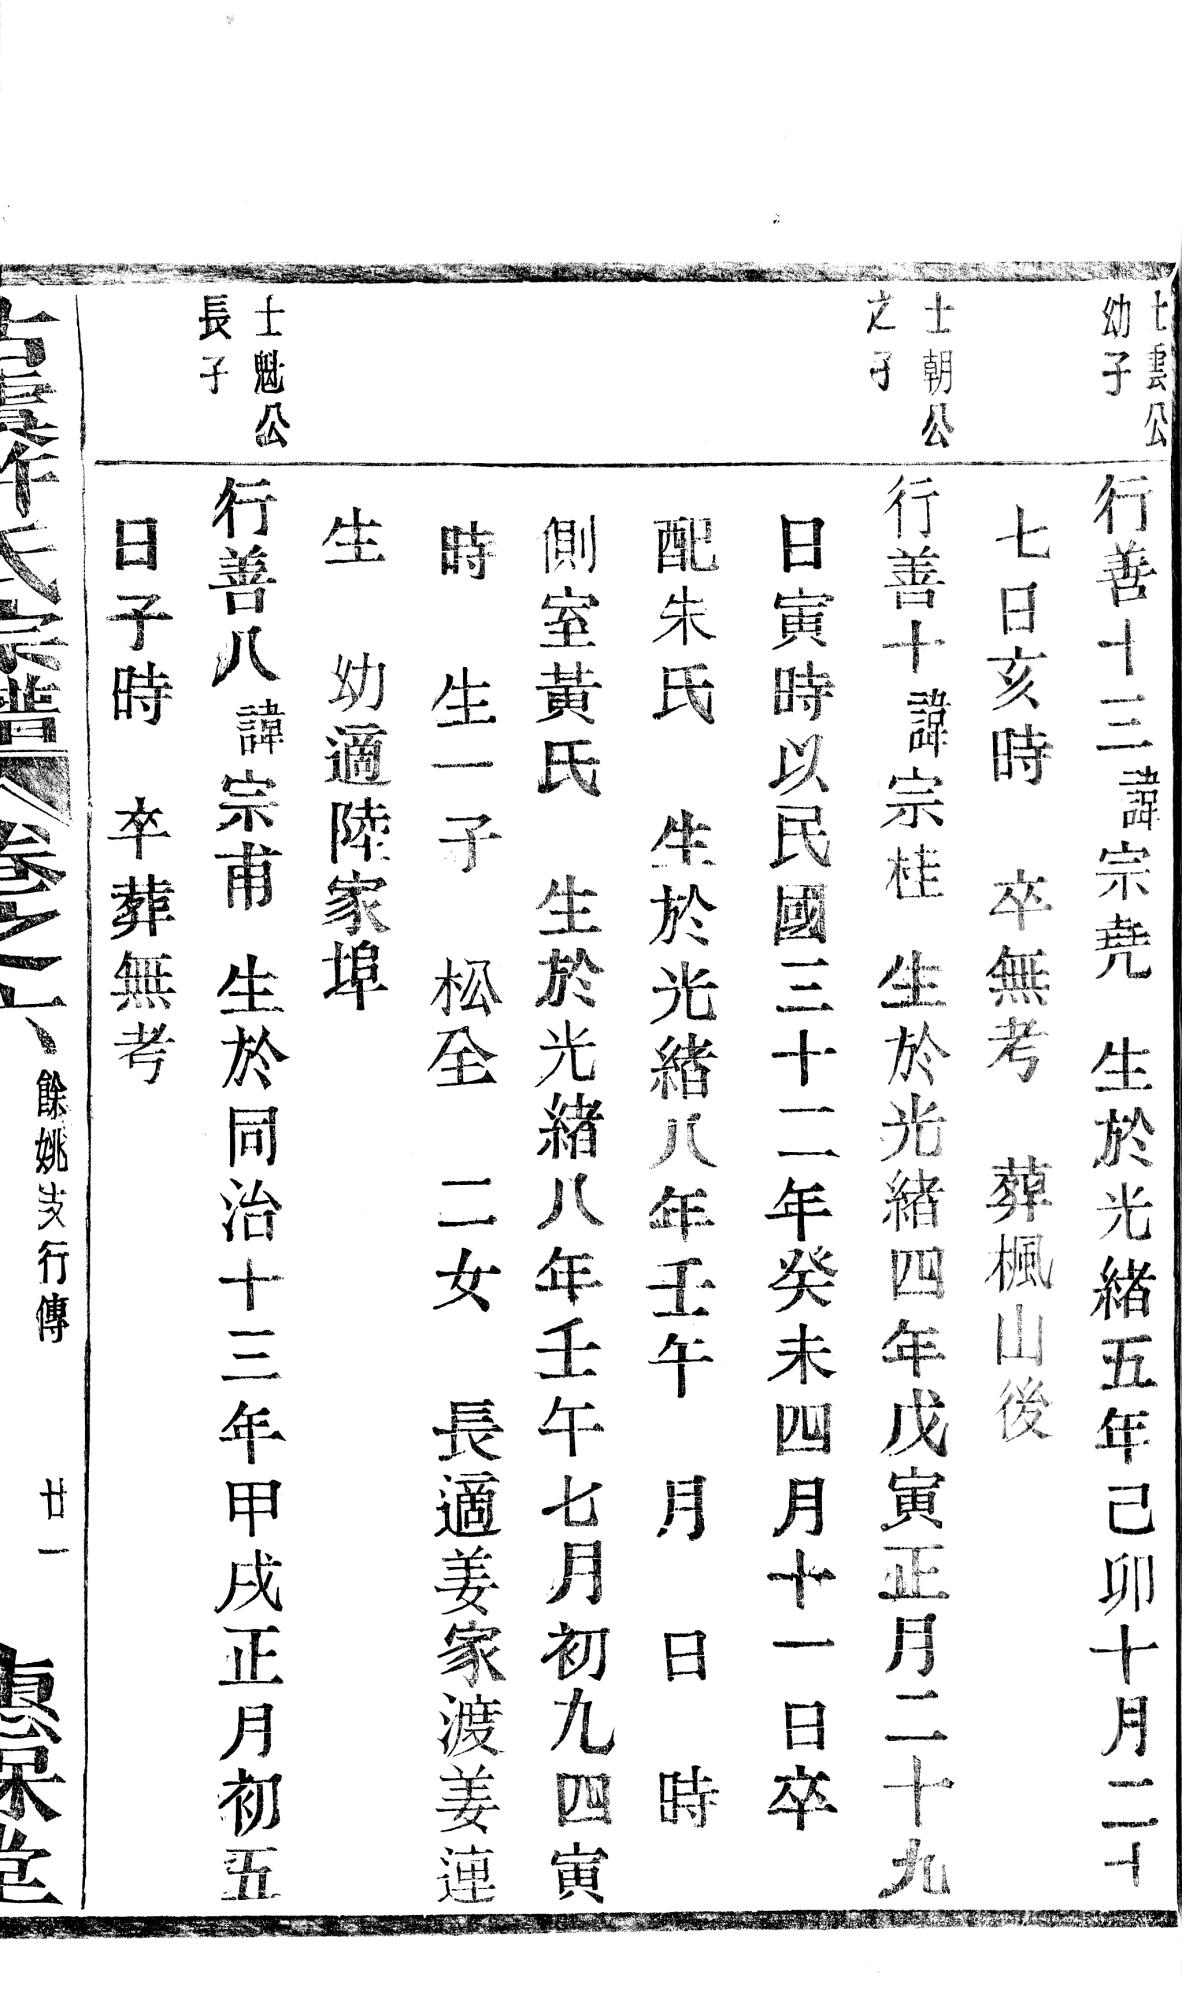 士雲公
幼子
行善十三諱宗堯　生於光緒五年己卯十月二十
七日亥時　卒無考　葬楓山後
士朝公
之子
行善十諱宗桂　生於光緒四年戊寅正月二十九
日寅時以民國三十二年癸未四月十一日卒
配朱氏　生於光緒八年壬午　月　日　時
側室黃氏　生於光緒八年壬午七月初九四寅
時　生一子　松全　二女　長適姜家渡姜連
生　幼適陸家埠
士魁公
長子
行善八諱宗甫　生於同治十三年甲戌正月初五
日子時　卒葬無考
古虞許氏宗譜　卷之六　餘姚支行傳　廿一　惠保堂